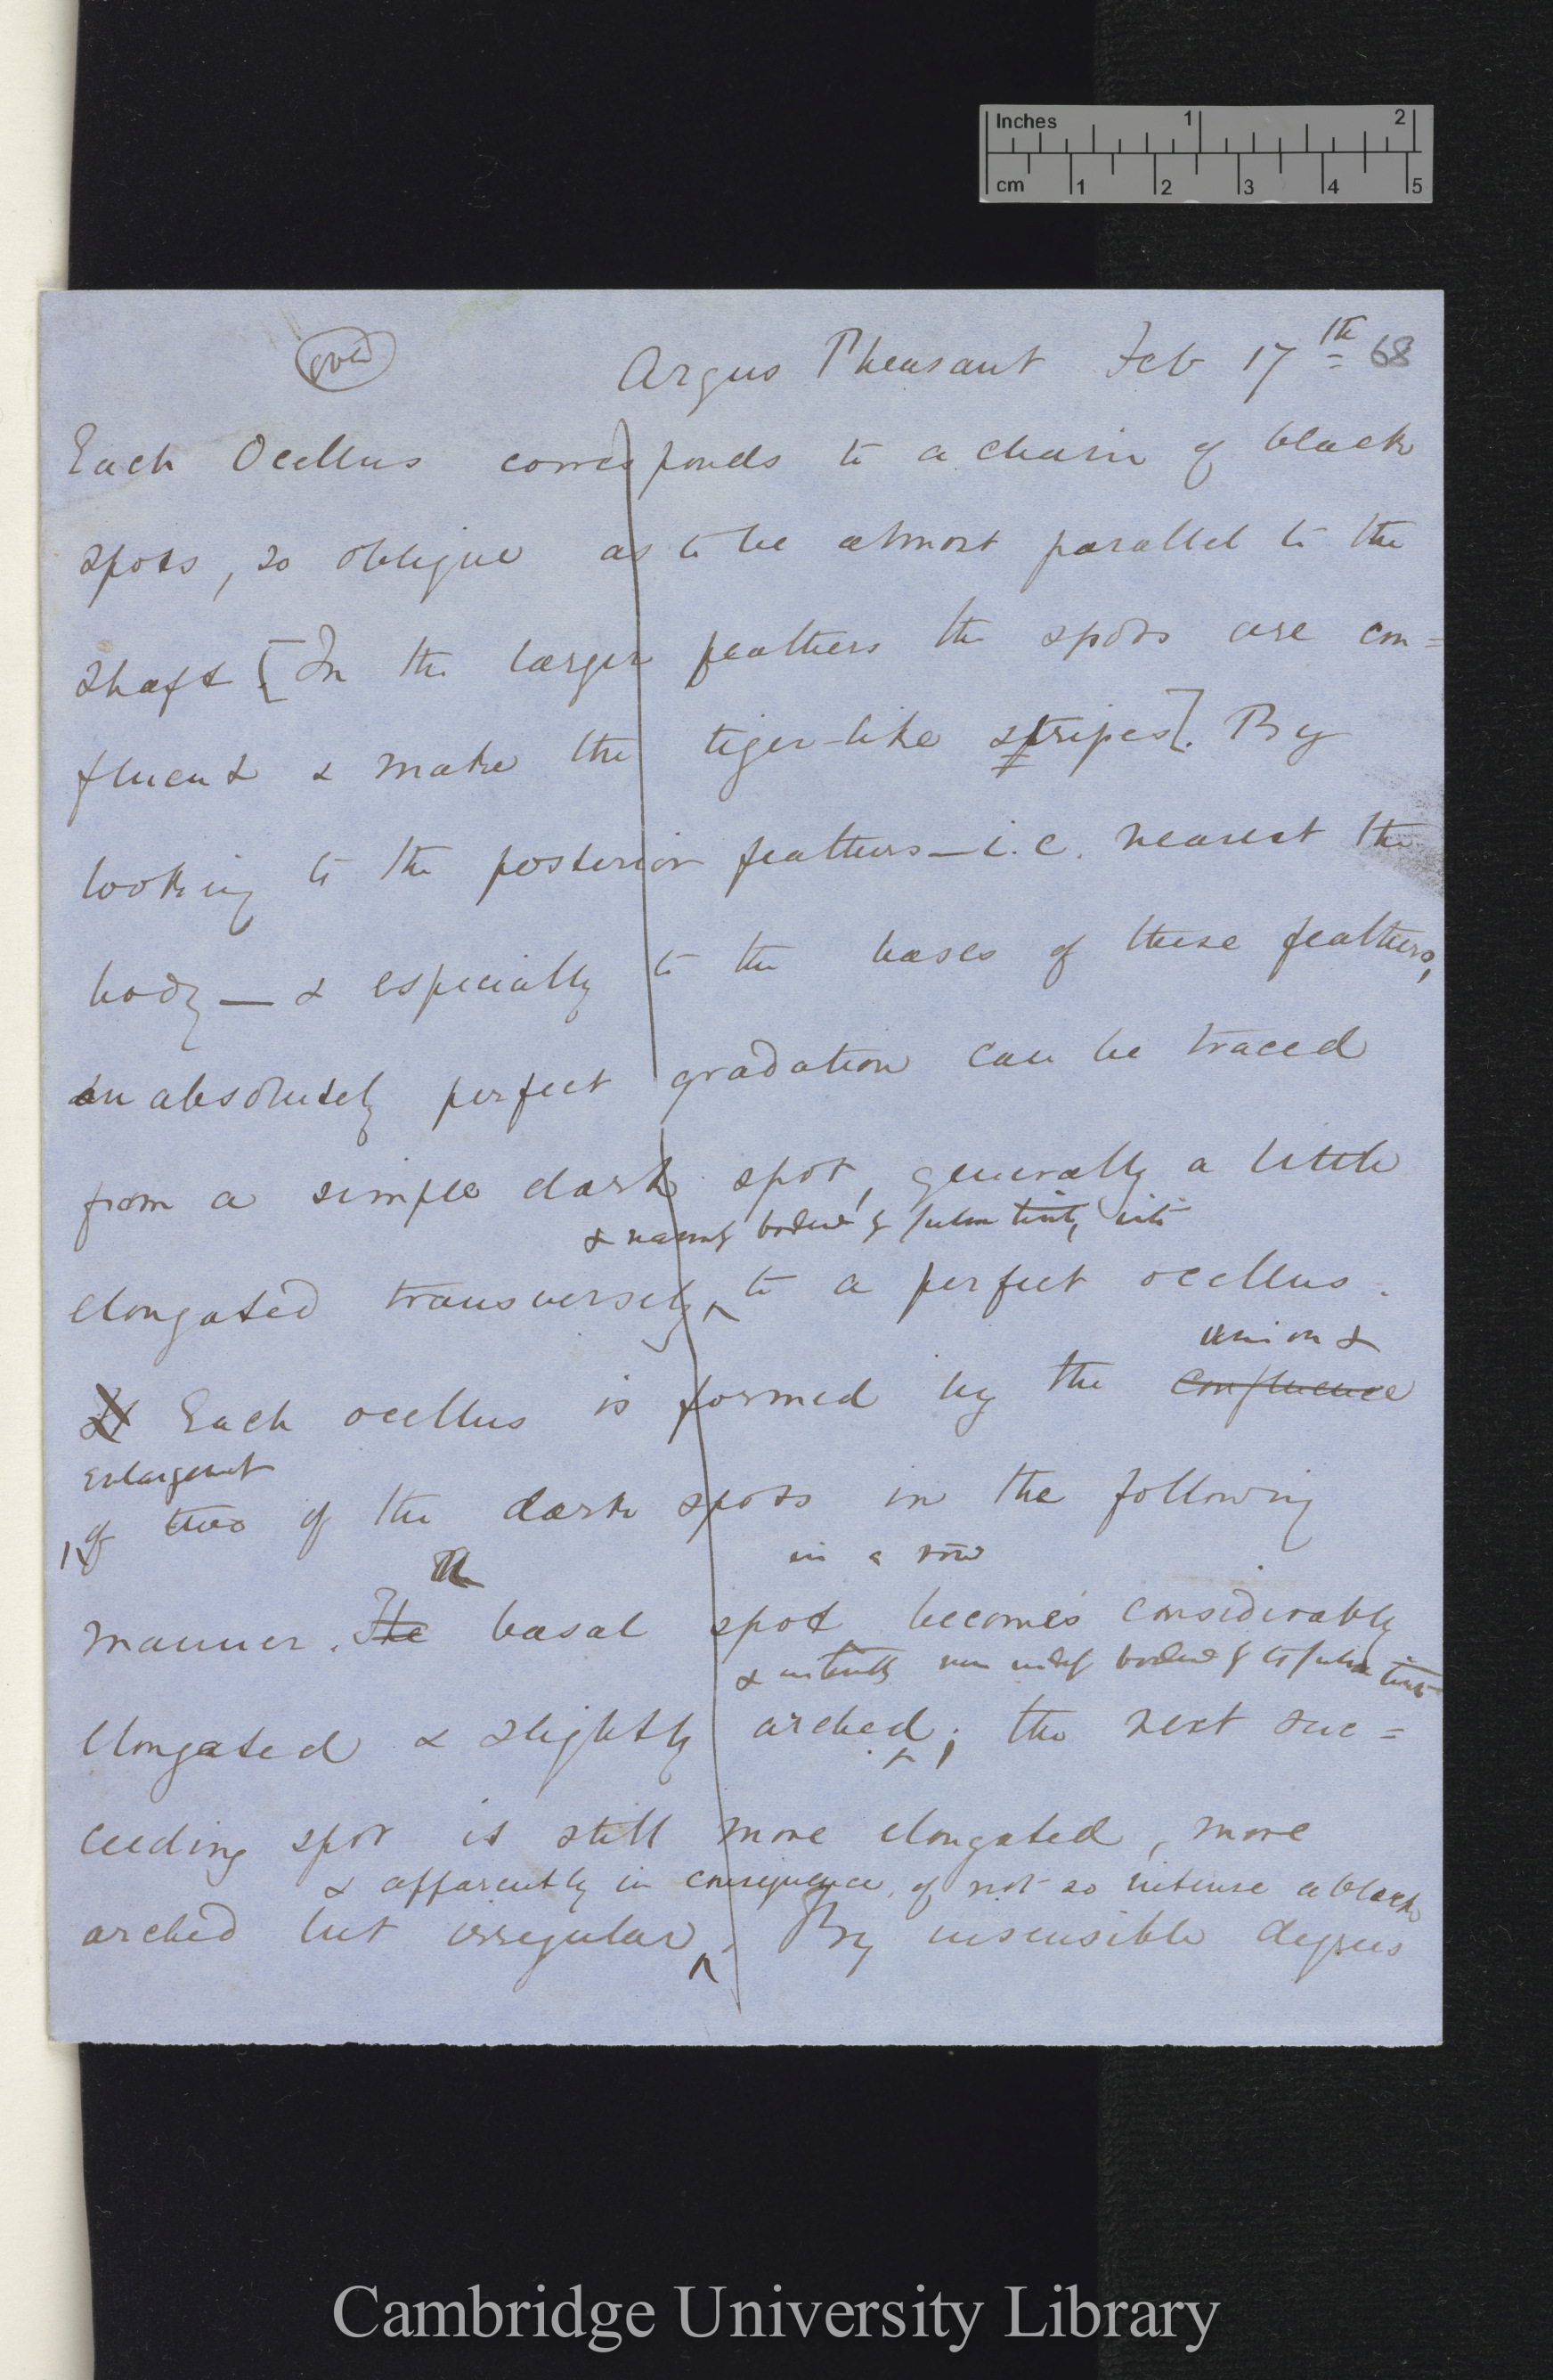 Inches 1 2
cm 1 2 3 4 5
Argus Pheasant Feb 17th 68
Each Ocellus corresponds to a chain of black
spots, so oblique as to be almost parallel to the
shaft [In the larger feathers the spots are con=
fluent & make the tiger-like stripes]. By
looking to the posterior feathers — i.e. nearest the
body — & especially to the bases of these feathers,
an absolutely perfect gradation can be traced
from a simple dark spot, generally a little
& bordered by fulvous tint, into
elongated transversely to a perfect ocellus.
union &
Each ocellus is formed by the confluence
enlargement
of two of the dark spots in the following
in a row
manner. The basal spot becomes considerably
& bordered by fulvous tint
elongated & slightly arched; the next suc=
ceeding spot is still more elongated, more
& apparently in consequence, of not so intense a black
arched but irregular. By insensible degrees
Cambridge University Library